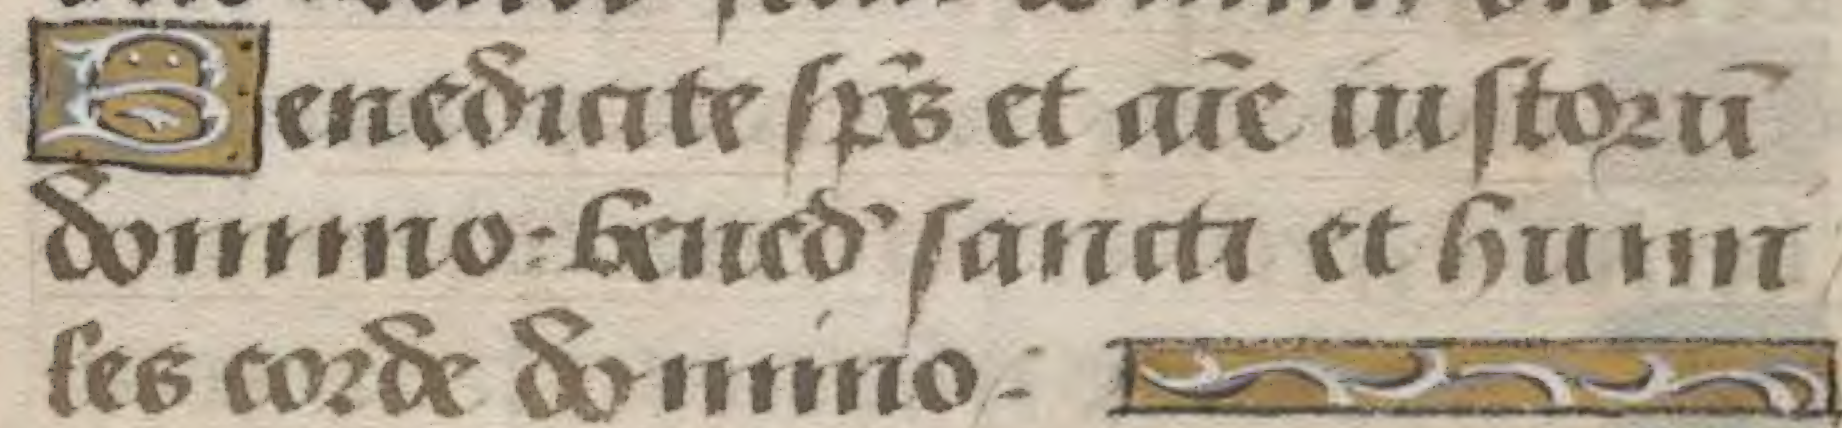 Benedicite sp̄s et aīe iustorū
domino: bened̓ sancti et humi
les corde domino: